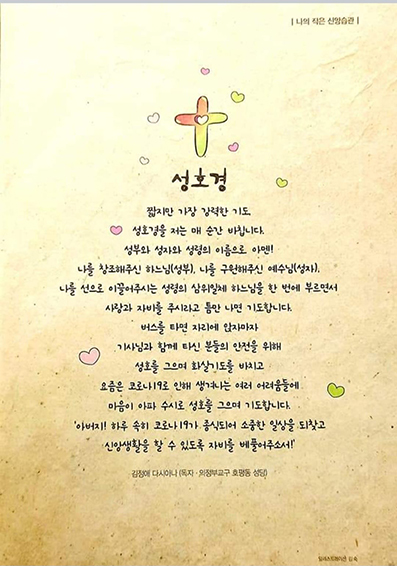 | 나의 작은 신앙습관 |
성호경
짧지만 가장 강력한 기도,
성호경을 저는 매 순간 바칩니다.
성부와 성자와 성령의 이름으로 아멘!
나를 창조해주신 하느님(성부), 나를 구원해주신 예수님(성자),
나를 선으로 이끌어주시는 성령의 삼위일체 하느님을 한 번에 부르면서
사랑과 자비를 주시라고 틈만 나면 기도합니다.
버스를 타면 자리에 앉자마자
기사님과 함께 타신 분들의 안전을 위해
성호를 그으며 화살기도를 바치고
요즘은 코로나19로 인해 생겨나는 여러 어려움들에
마음이 아파 수시로 성호를 그으며 기도합니다.
'아버지! 하루 속히 코로나19가 종식되어 소중한 일상을 되찾고
신앙생활을 할 수 있도록 자비를 베풀어주소서!'
김정애 다시아나 (독자 · 의정부교구 호평동 성당)